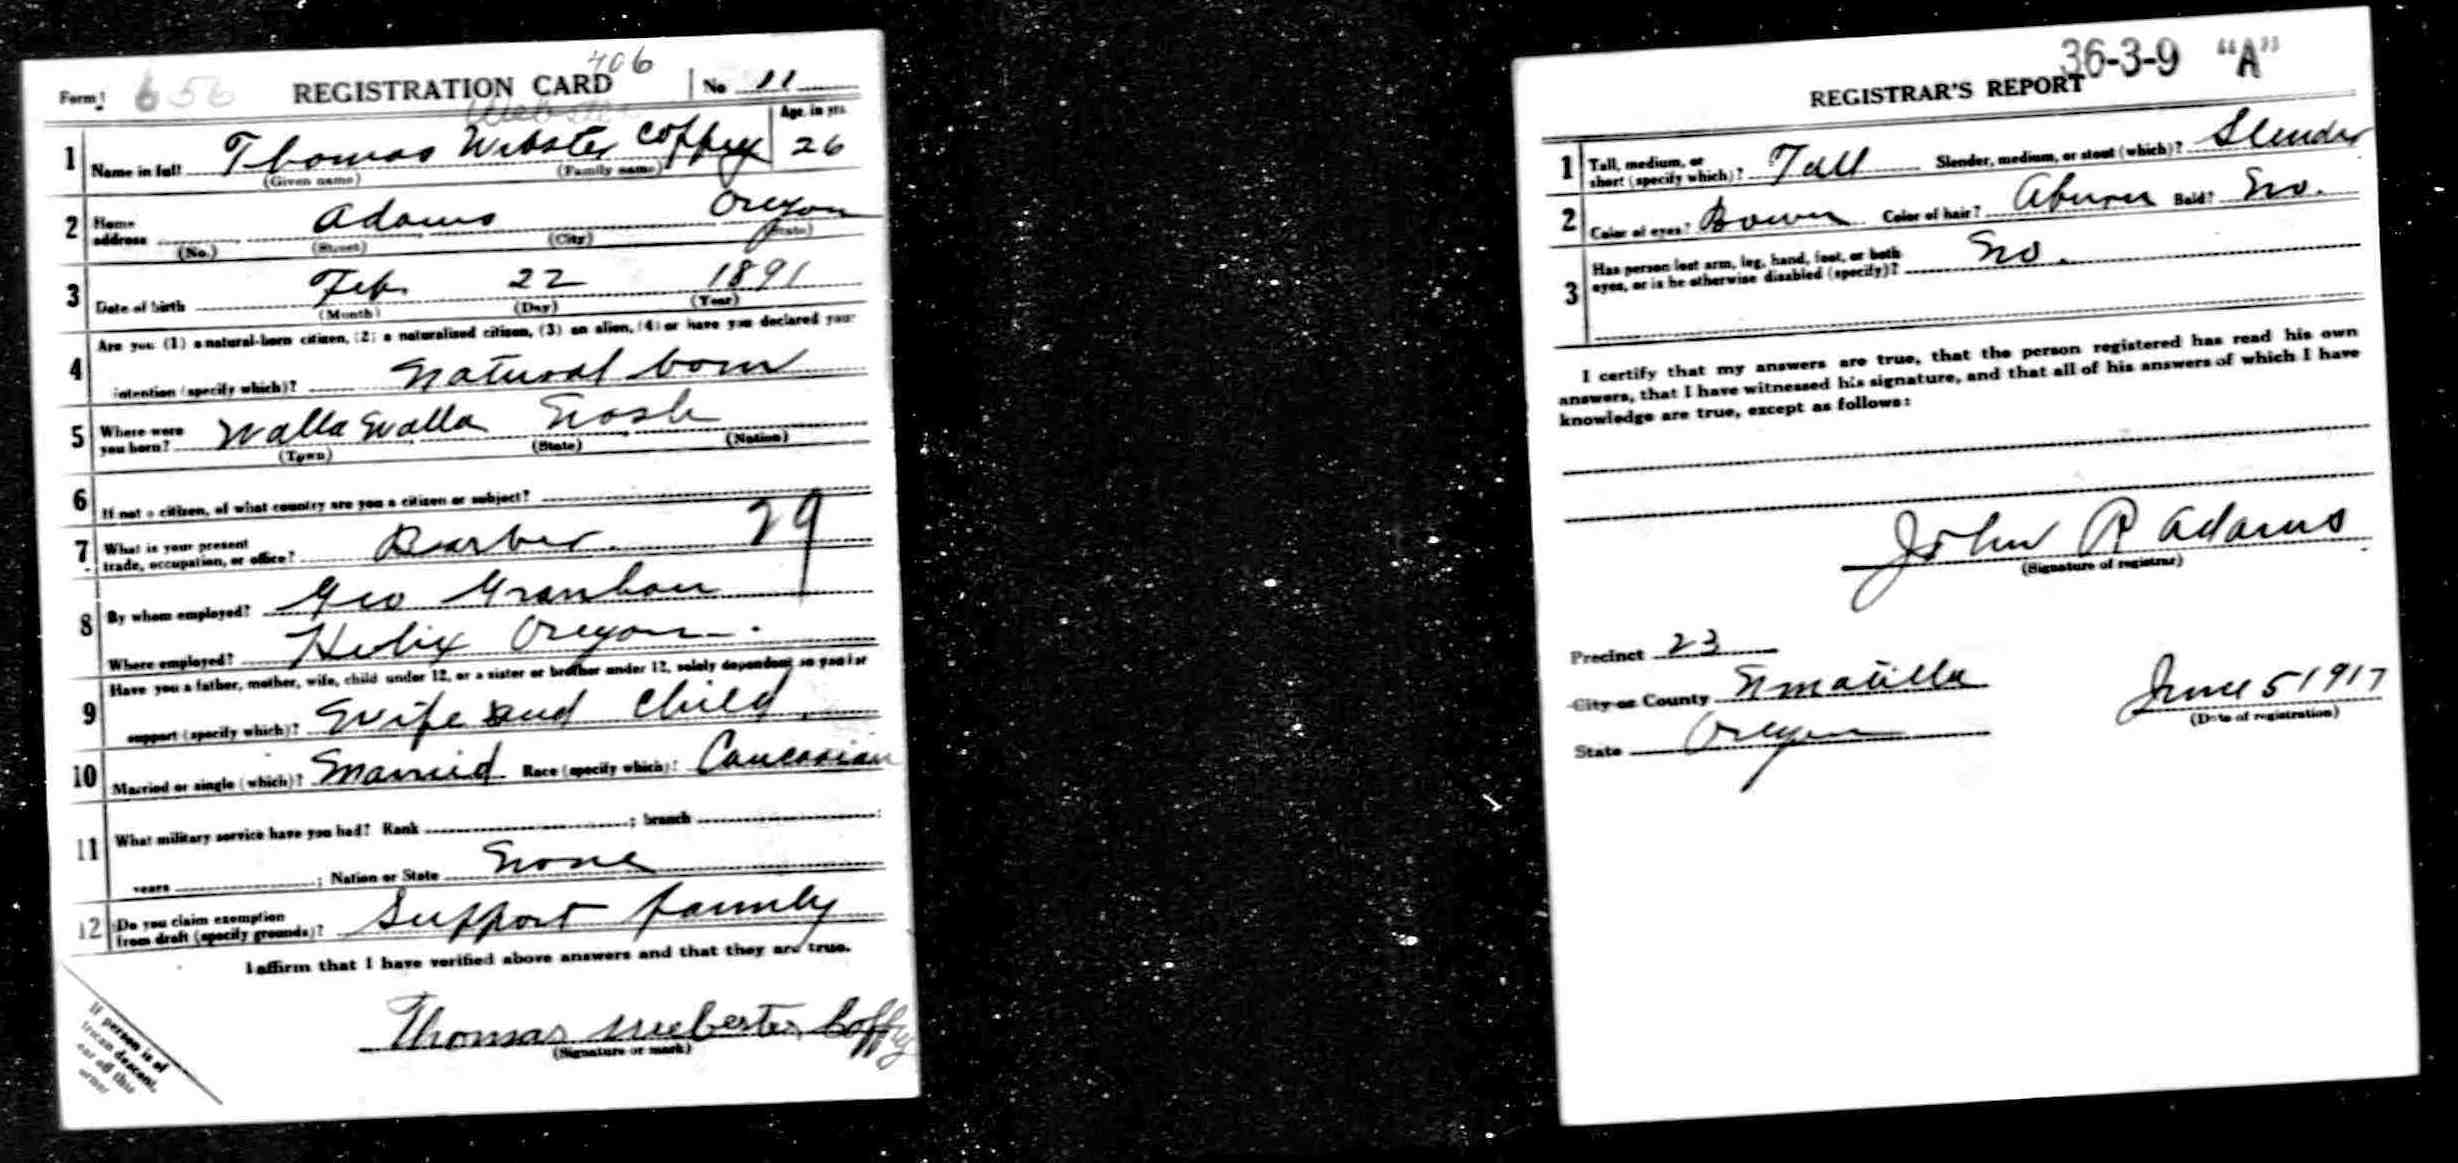 406
Form 1 656 REGISTRATION CARD No. 11
Webster
Age, in yrs.
1 Name in full Thomas Webster Coffey 26
(Given name) (Family name)
2 Home address Adams Oregon
(No.) (Street) (City) (State)
3 Date of birth Feb. 22 1891
(Month) (Day) (Year)
Are you (1) a natural-born citizen, (2) a naturalized citizen, (3) an alien, (4) or have you declared your
4 intention (specify which)? Natural born
5 Where were you born? Walla Walla Wash
(Town) (State) (Nation)
6 If not a citizen, of what country are you a citizen or subject?
7 What is your present trade, occupation, or office? Barber. 29
8 By whom employed? Geo
Where employed? Helix Oregon
Have you a father, mother, wife, child under 12, or a sister or brother under 12, solely dependent on you for
9 support (specify which)? Wife and child.
10 Married or single (which)? Married Race (specify which)? Caucasian
11 What military service have you had? Rank ; branch ;
years ; Nation or State None
12 Do you claim exemption from draft (specify grounds)? Support family
I affirm that I have verified above answers and that they are true.
Thomas Webster Coffey
(Signature or mark)
If person is of
African descent,
tear off this
corner
36-3-9 "A"
REGISTRAR'S REPORT
1 Tall, medium, or short (specify which)? Tall Slender, medium, or stout (which)? Slender
2 Color of eyes? Bown Color of hair? Aburn Bald? No.
3 Has person lost arm, leg, hand, foot, or both
eyes, or is he otherwise disabled (specify)? No.
I certify that my answers are true, that the person registered has read his own
answers, that I have witnessed his signature, and that all of his answers of which I have
knowledge are true, except as follows:
John R Adams
(Signature of registrar)
Precinct 23
City or County Umatilla June 5 1917
(Date of registration)
State Oregon